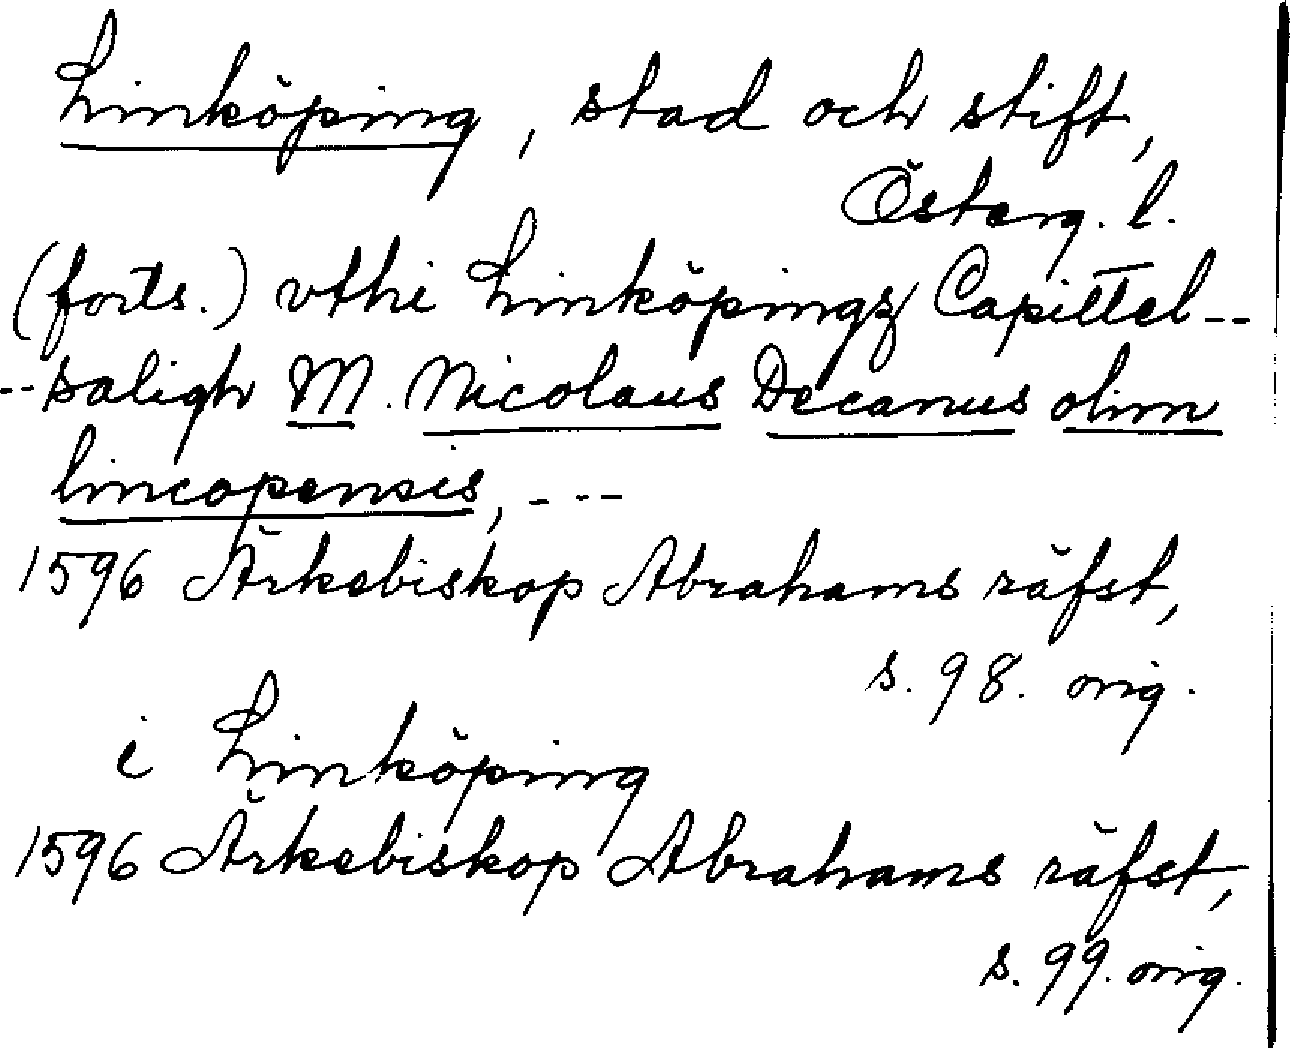 Linköping, stad och stift,
Österg. l.
(forts.) vthi Linköpingz Capittel --
-- saligh M. Nicolaus Decanus olim
lincopensis, - - - -
1596 Ärkebiskop Abrahams räfst,
s. 98. orig.
i Linköping
1596 Ärkebiskop Abrahams räfst,
s. 99. orig.